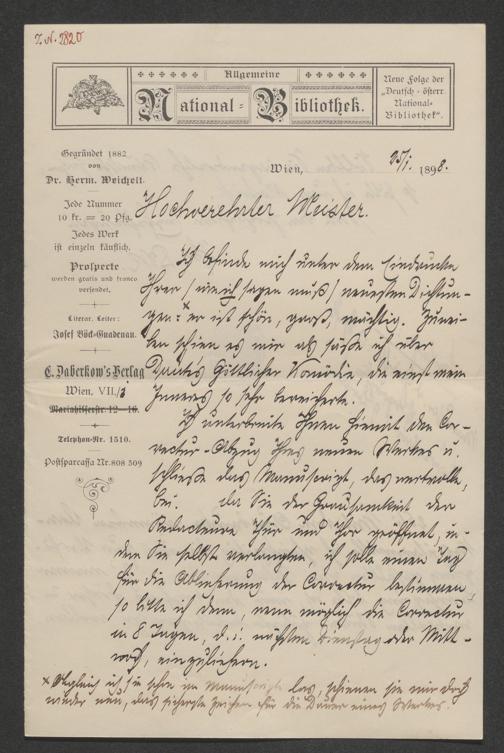 I. N. 7820
Allgemeine
National-Bibliothek.
Neue Folge der
„Deutsch-österr.
National-
Bibliothek“.
Gegründet 1882
von
Dr. Herm. Weichelt.
Jede Nummer
10 kr. = 20 Pfg.
Jedes Werk
ist einzeln käuflich.
Prospecte
werden gratis und franco
versendet.
Literar. Leiter:
Josef Böck-Gnadenau.
C. Daberkow's Verlag
Wien, VII./3
Mariahilferstr. 12–16.
Telephon-Nr. 1510.
Postsparcassa Nr. 808 509
Wien, 25/I. 1898.
Hochverehrter Meister.
Ich befinde mich unter dem Eindrucke
Ihrer (wie ich sagen muß) neuesten Dichtun-
gen:× er ist schön, groß, mächtig. Zuwei-
len schien es mir als säße ich über
Dante's Göttlicher Komödie, die einst mein
Inneres so sehr bereicherte.
Ich unterbreite Ihnen hiemit den Cor-
rectur-Abzug Ihres neuen Werkes u.
schließe das Manuscript, das wertvolle,
bei. Da Sie der Grausamkeit der
Redacteure Thür und Thor geöffnet, in-
dem Sie selbst verlangten, ich solle einen Tag
für die Ablieferung der Correctur bestimmen,
so bitte ich denn, wenn möglich die Correctur
in 8 Tagen, d. i. nächsten Dienstag oder Mitt-
woch, einzuliefern.
× Obgleich ich sie schon im Manuscripte las, schienen sie mir doch
wieder neu, das sicherste Zeichen für die Dauer eines Werkes.